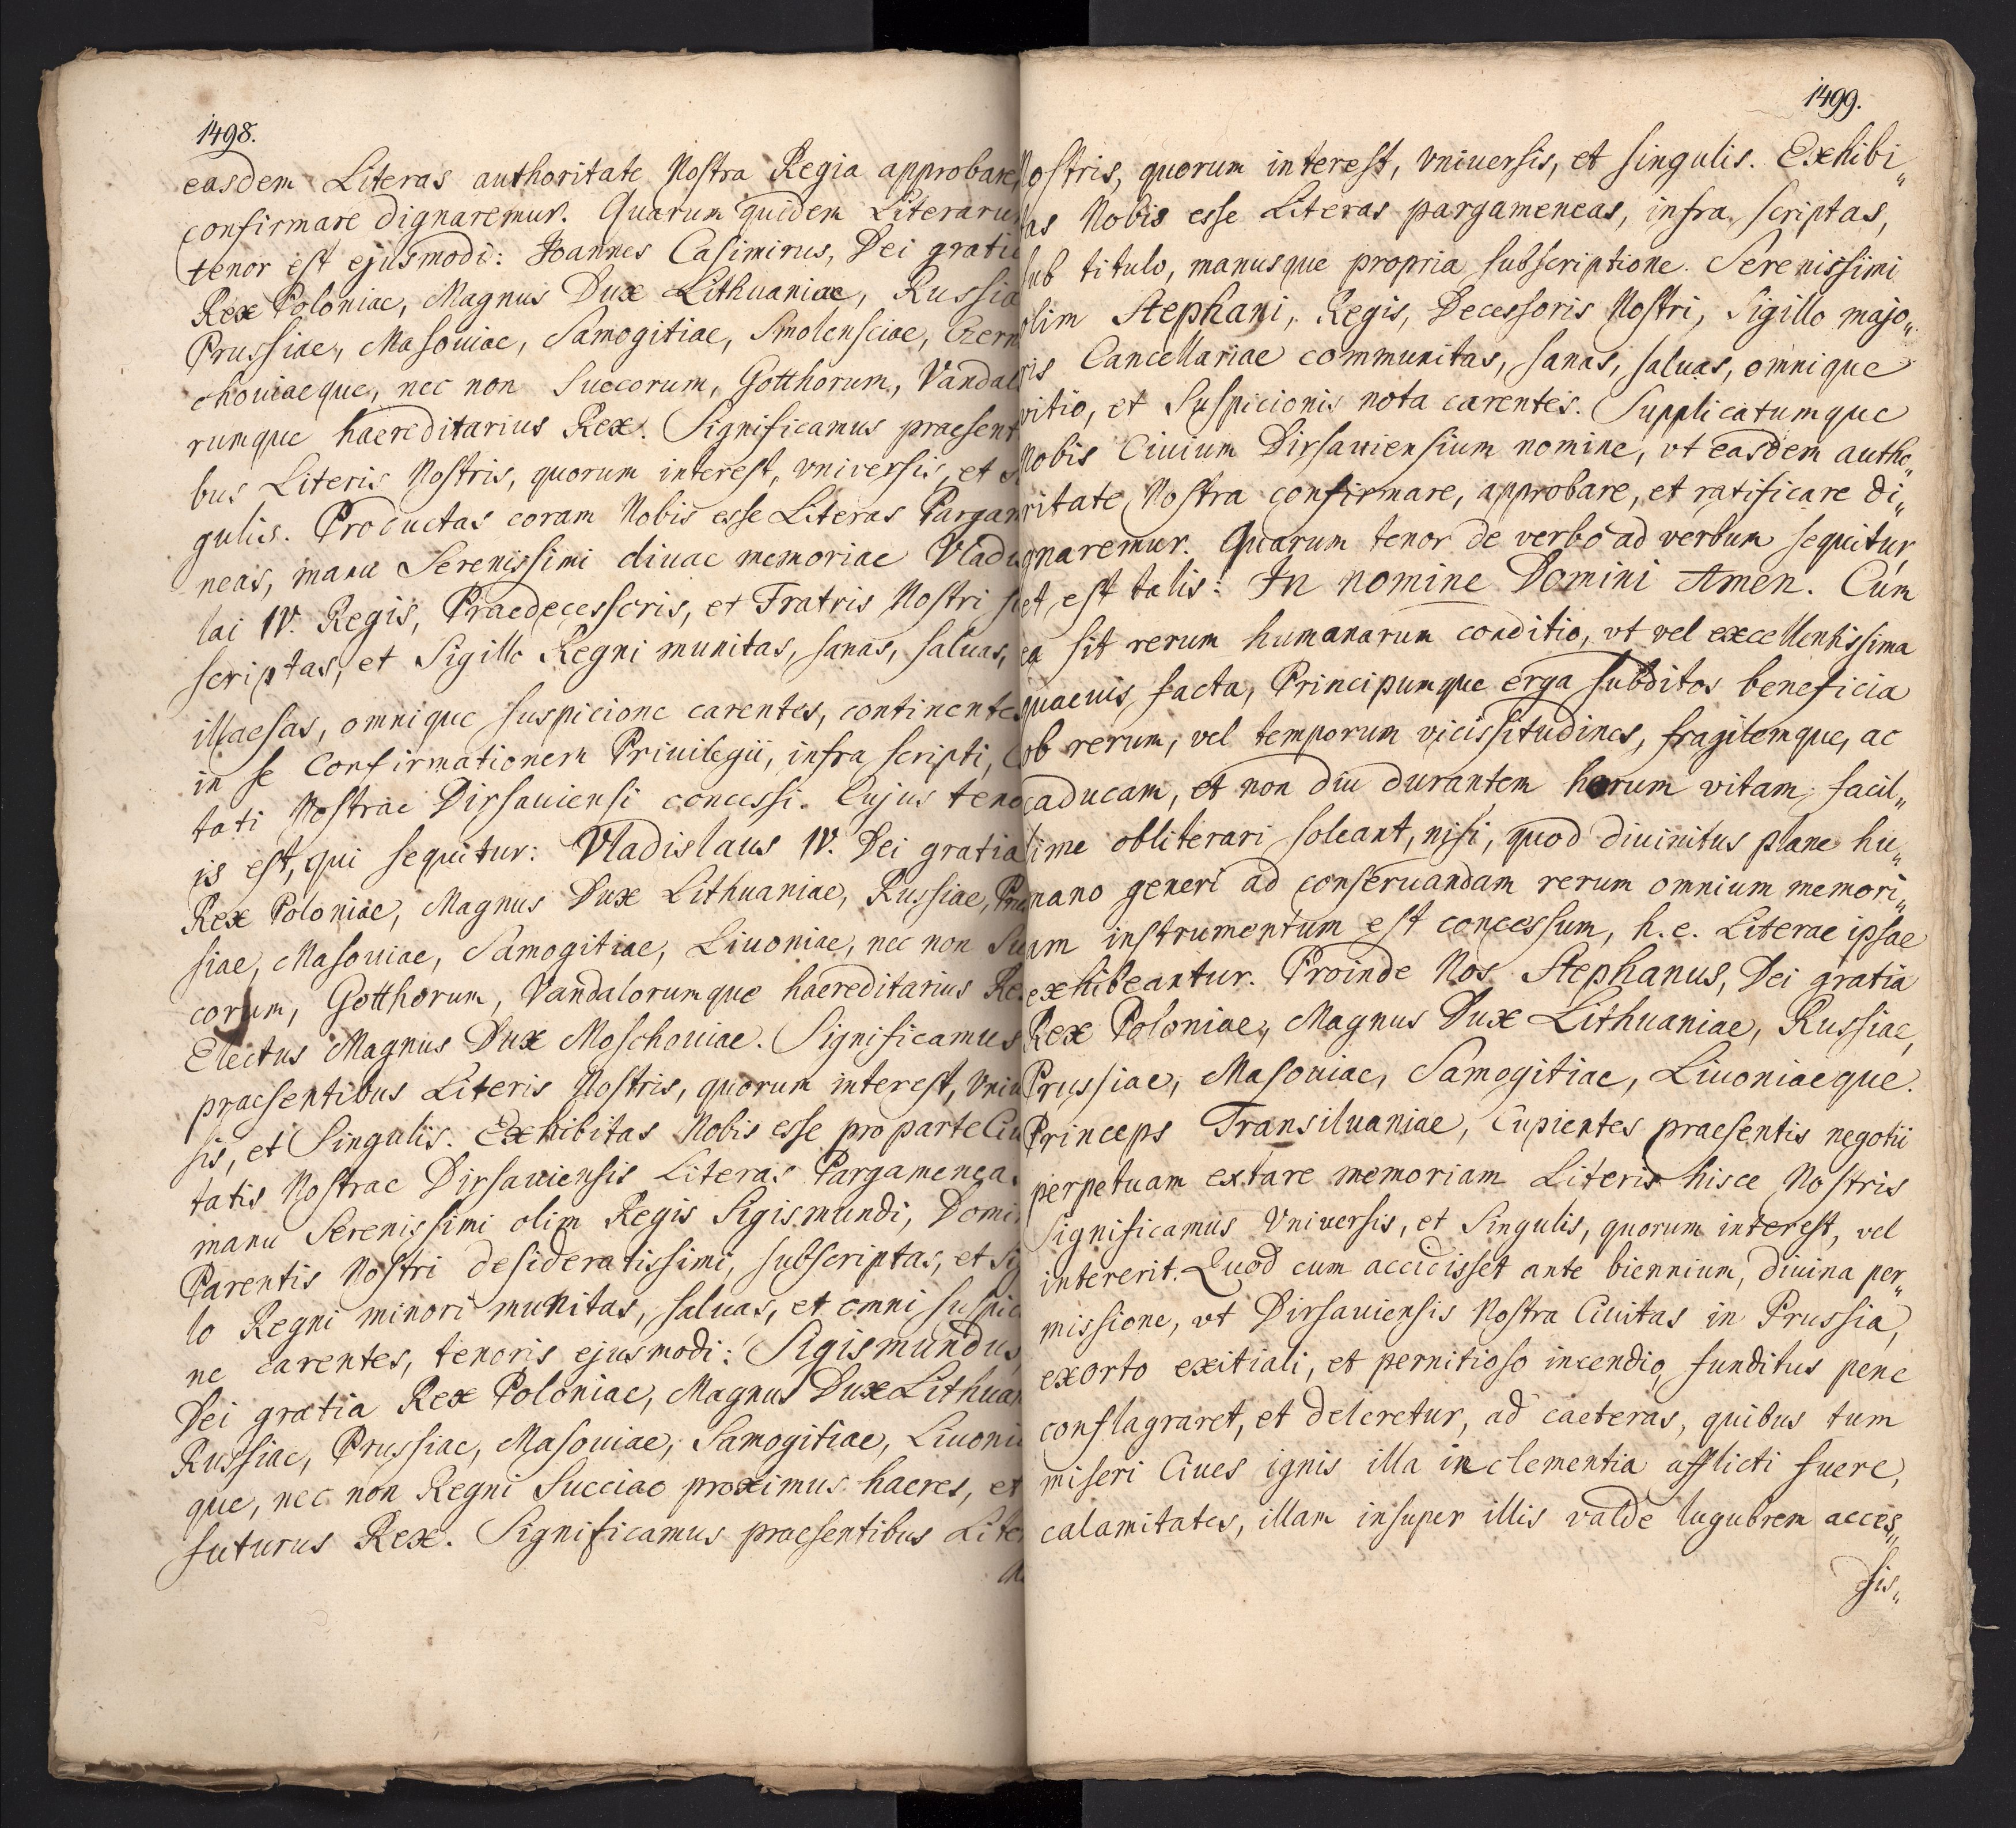 1498.
easdem Literas authoritate Nostra Regia approbare,
confirmare dignaremur. Quarum quidem Literaru
tenor est ejusmodi: Joannes Casimirus, Dei grati
Rex Poloniae, Magnus Dux Lithuaniae, Russia
Prussiae, Masoviae, Samogitiae, Smolensciae, Czern
choviaeque, nec non Suecorum, Gotthorum, Vandal
rumque haereditarius Rex. Significamus praesent
bus Literis Nostris, quorum interest, vniversis, et
gulis. Productas coram Nobis esse Literas Pargam
neas, manu Serenissimi divae memoriae Vladis
lai IV. Regis, Praedecessoris, et Fratris Nostri
scriptas, et Sigillo Regni munitas, sanas, saluas,
illaesas, omnique suspicione carentes, continente
in se Confirmationem Priuilegii, infra scripti,
tati Nostrae Dirsauiensi concessi. Cujus teno
is est, qui sequitur: Vladislaus IV. Dei gratia
Rex Poloniae, Magnus Dux Lithuaniae, Russiae, Prus
siae, Masouiae, Samogitiae, Liuoniae, nec non Su
corum, Gotthorum, Vandalorumque haereditarius Re
Electus Magnus Dux Moschouiae. Significamus
praesentibus Literis Nostris, quorum interest, Vniu
sis, et Singulis. Exhibitas Nobis esse pro parte Ciu
tatis Nostrae Dirsauiensis Literas Pargamenea
manu Serenissimi olim Regis Sigismundi, Domi
Parentis Nostri desideratissimi, subscriptas, et Si
lo Regni minori munitas, saluas, et omni suspic
ne carentes, tenoris ejusmodi: Sigismundus,
Dei gratia Rex Poloniae, Magnus Dux Lithuan
Russiae, Prussiae, Masouiae, Samogitiae, Liuoni
que, nec non Regni Sueciae proximus haeres, et
futurus Rex. Significamus praesentibus Liter
1499.
Nostris, quorum interest, vniuersis, et singulis. Exhibi„
tas Nobis esse Literas pargameneas, infra scriptas,
sub titulo, manusque propria subscriptione Serenissimi
olim Stephani, Regis, Decessoris Nostri, Sigillo majo„
ris Cancellariae communitas, sanas, saluas, omnique
vitio, et Suspicionis nota carentes. Supplicatumque
Nobis Ciuium Dirsauiensium nomine, vt easdem autho„
ritate Nostra confirmare, approbare, et ratificare di„
gnaremur. Quarum tenor de verbo ad verbum sequitur,
et est talis: In nomine Domini Amen. Cum
ea sit rerum humanarum conditio, vt vel excellentissima
quaeuis facta, Principumque erga subditos beneficia
ob rerum, vel temporum vicissitudines, fragilemque, ac
caducam, et non diu durantem horum vitam, facil„
lime obliterari soleant, nisi, quod diuinitus plane hu„
mano generi ad conseruandam rerum omnium memori„
am instrumentum est concessum, h. e. Literae ipsae
exhibeantur. Proinde Nos Stephanus, Dei gratia
Rex Poloniae, Magnus Dux Lithuaniae, Russiae,
Prussiae, Masouiae, Samogitiae, Liuoniaeque.
Princeps Transiluaniae, Cupientes praesentis negotii
perpetuam extare memoriam Literis hisce Nostris
Significamus Vniuersis, et Singulis, quorum interest, vel
intererit. Quod cum accidisset ante biennium, diuina per„
missione, vt Dirsauiensis Nostra Ciuitas in Prussia,
exorto exitiali, et pernitioso incendio, funditus pene
conflagraret, et deleretur, ad caeteras, quibus tum
miseri Ciues ignis illa inclementia afflicti fuere,
calamitates, illam insuper illis valde lugubrem acces„
sis„